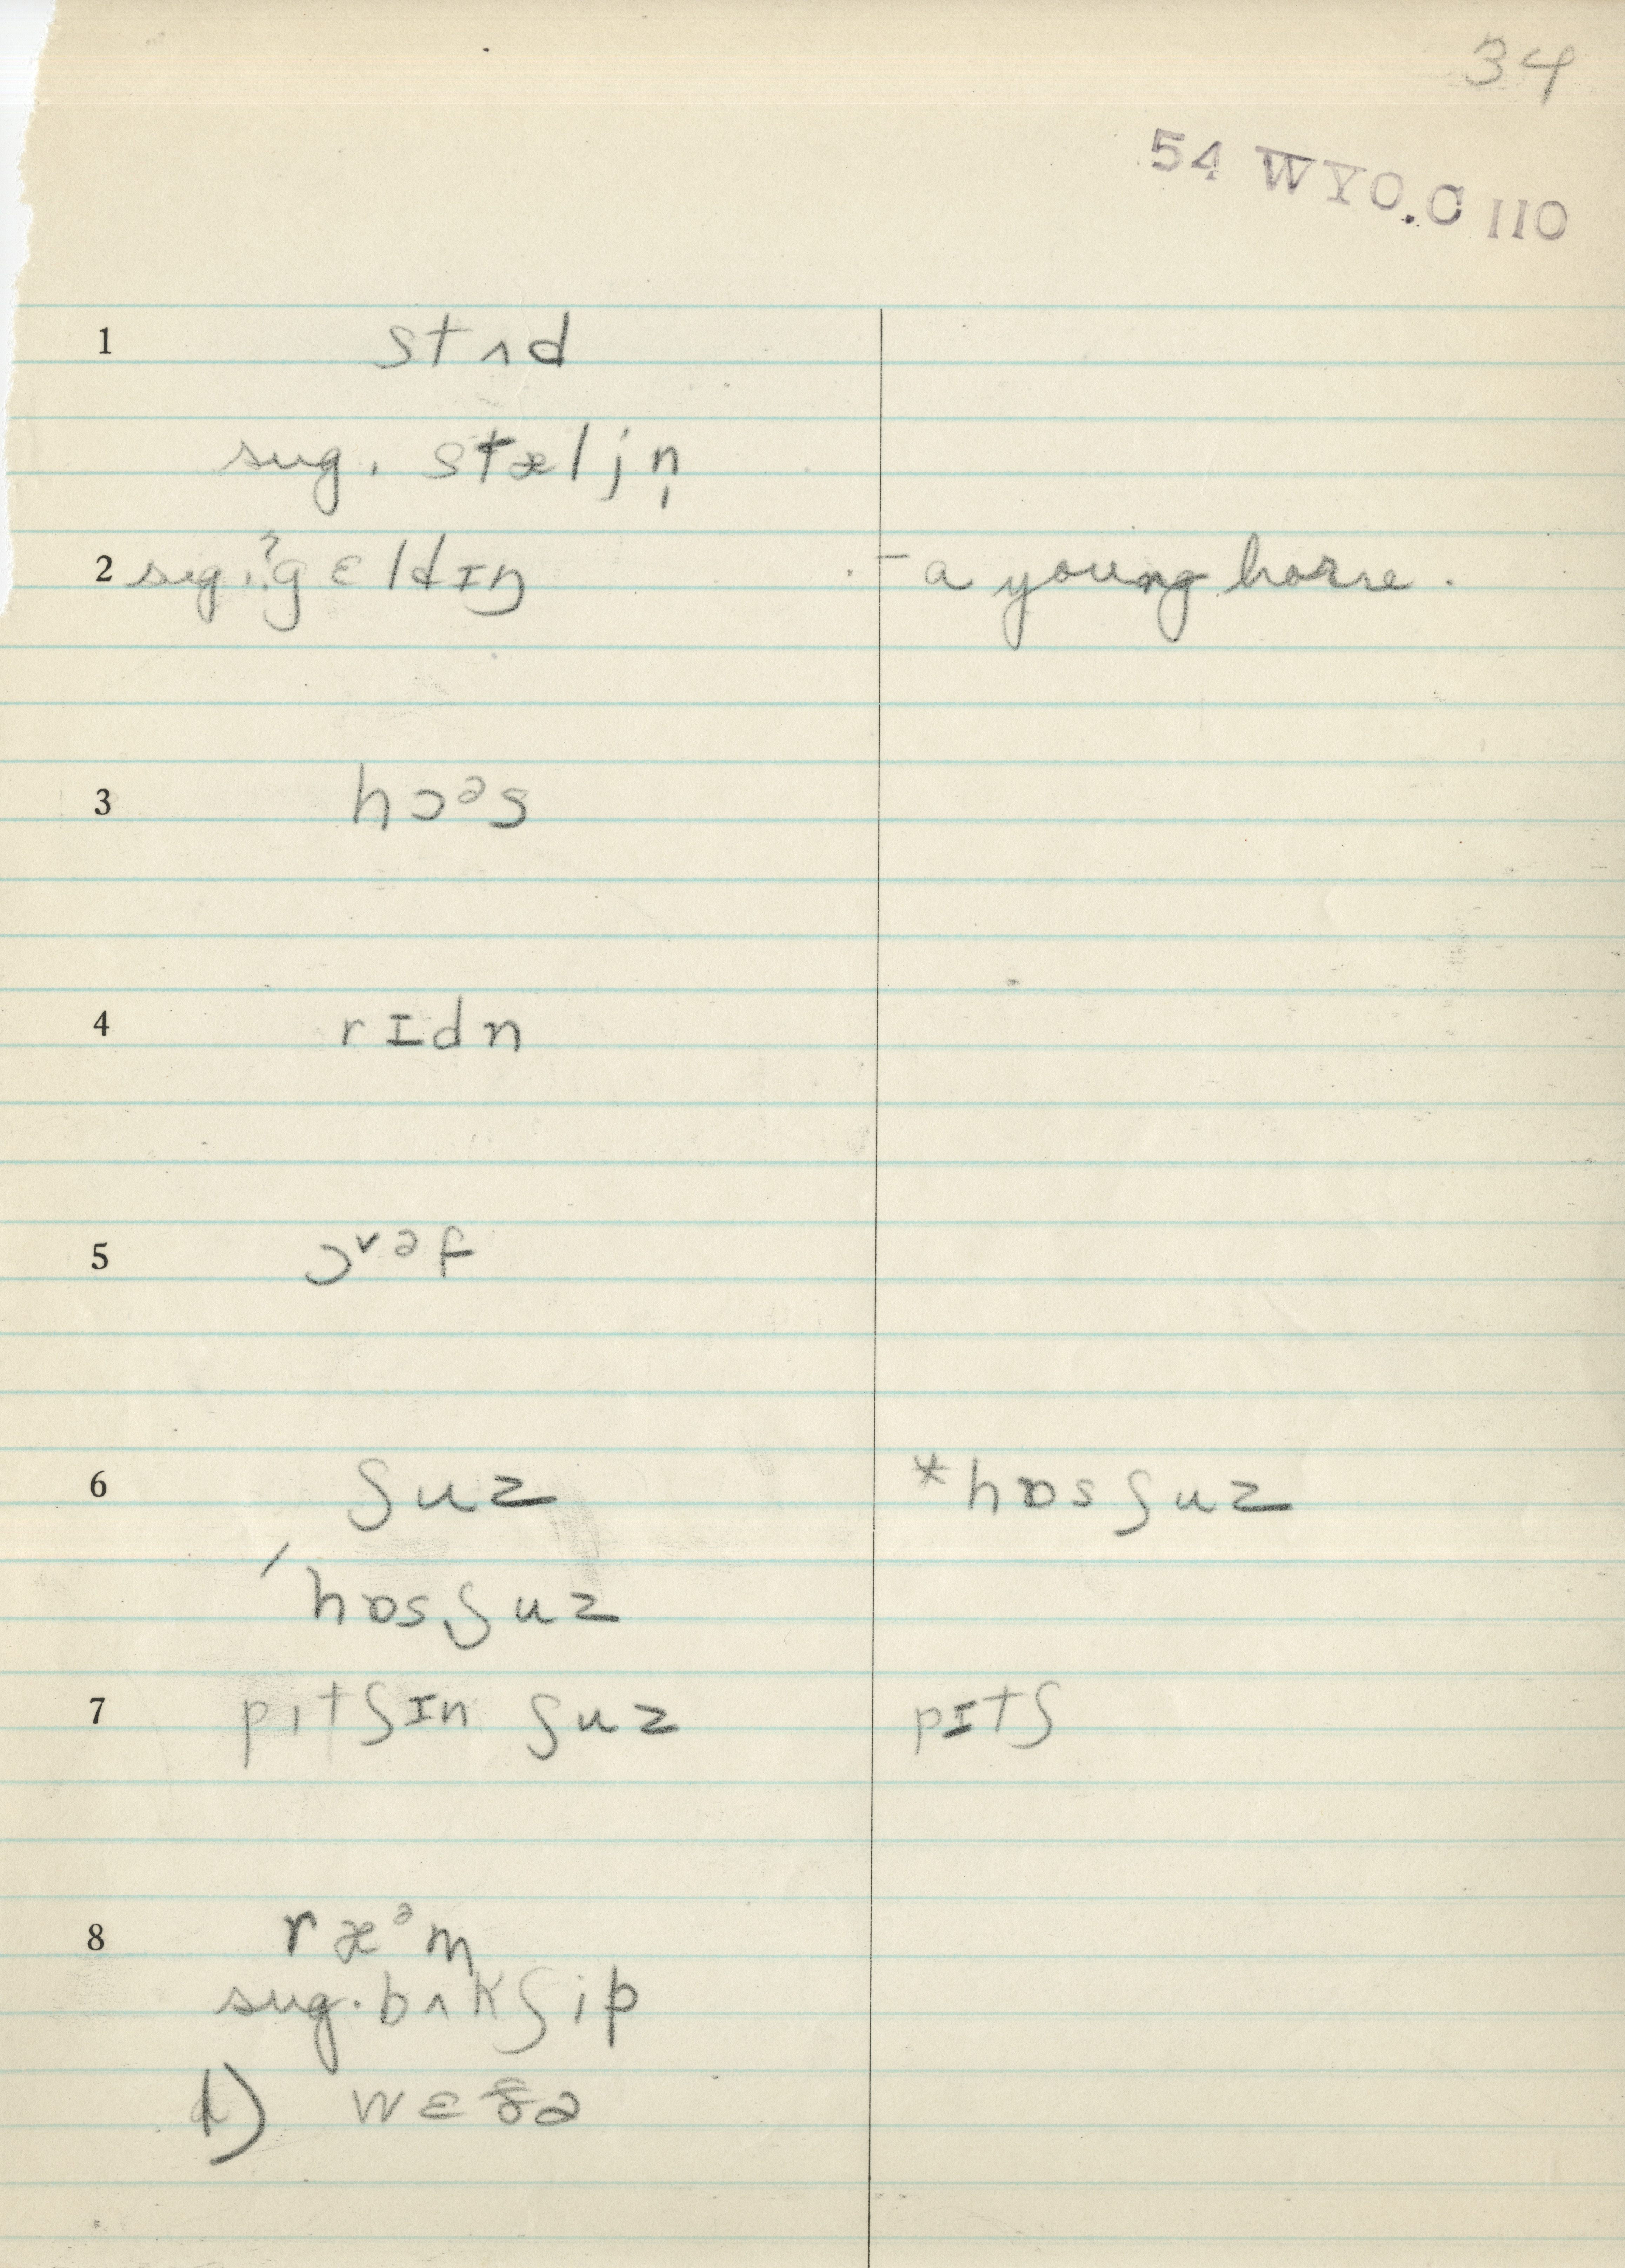 34
54 WYO.C 110
1 stʌd
sug. stæljn̩
2 sug. ?gɛldɪŋ - a young horse.
3 hɔᵊs
4 rɪdn
5 ɔᵛᵊf
6 ʃuz *hɒsʃuz
ˈhɒsˌʃuz
7 pɪtʃɪn ʃuz pɪtʃ
8 ræᵊm
sug. bʌkʃip
d) wɛðə